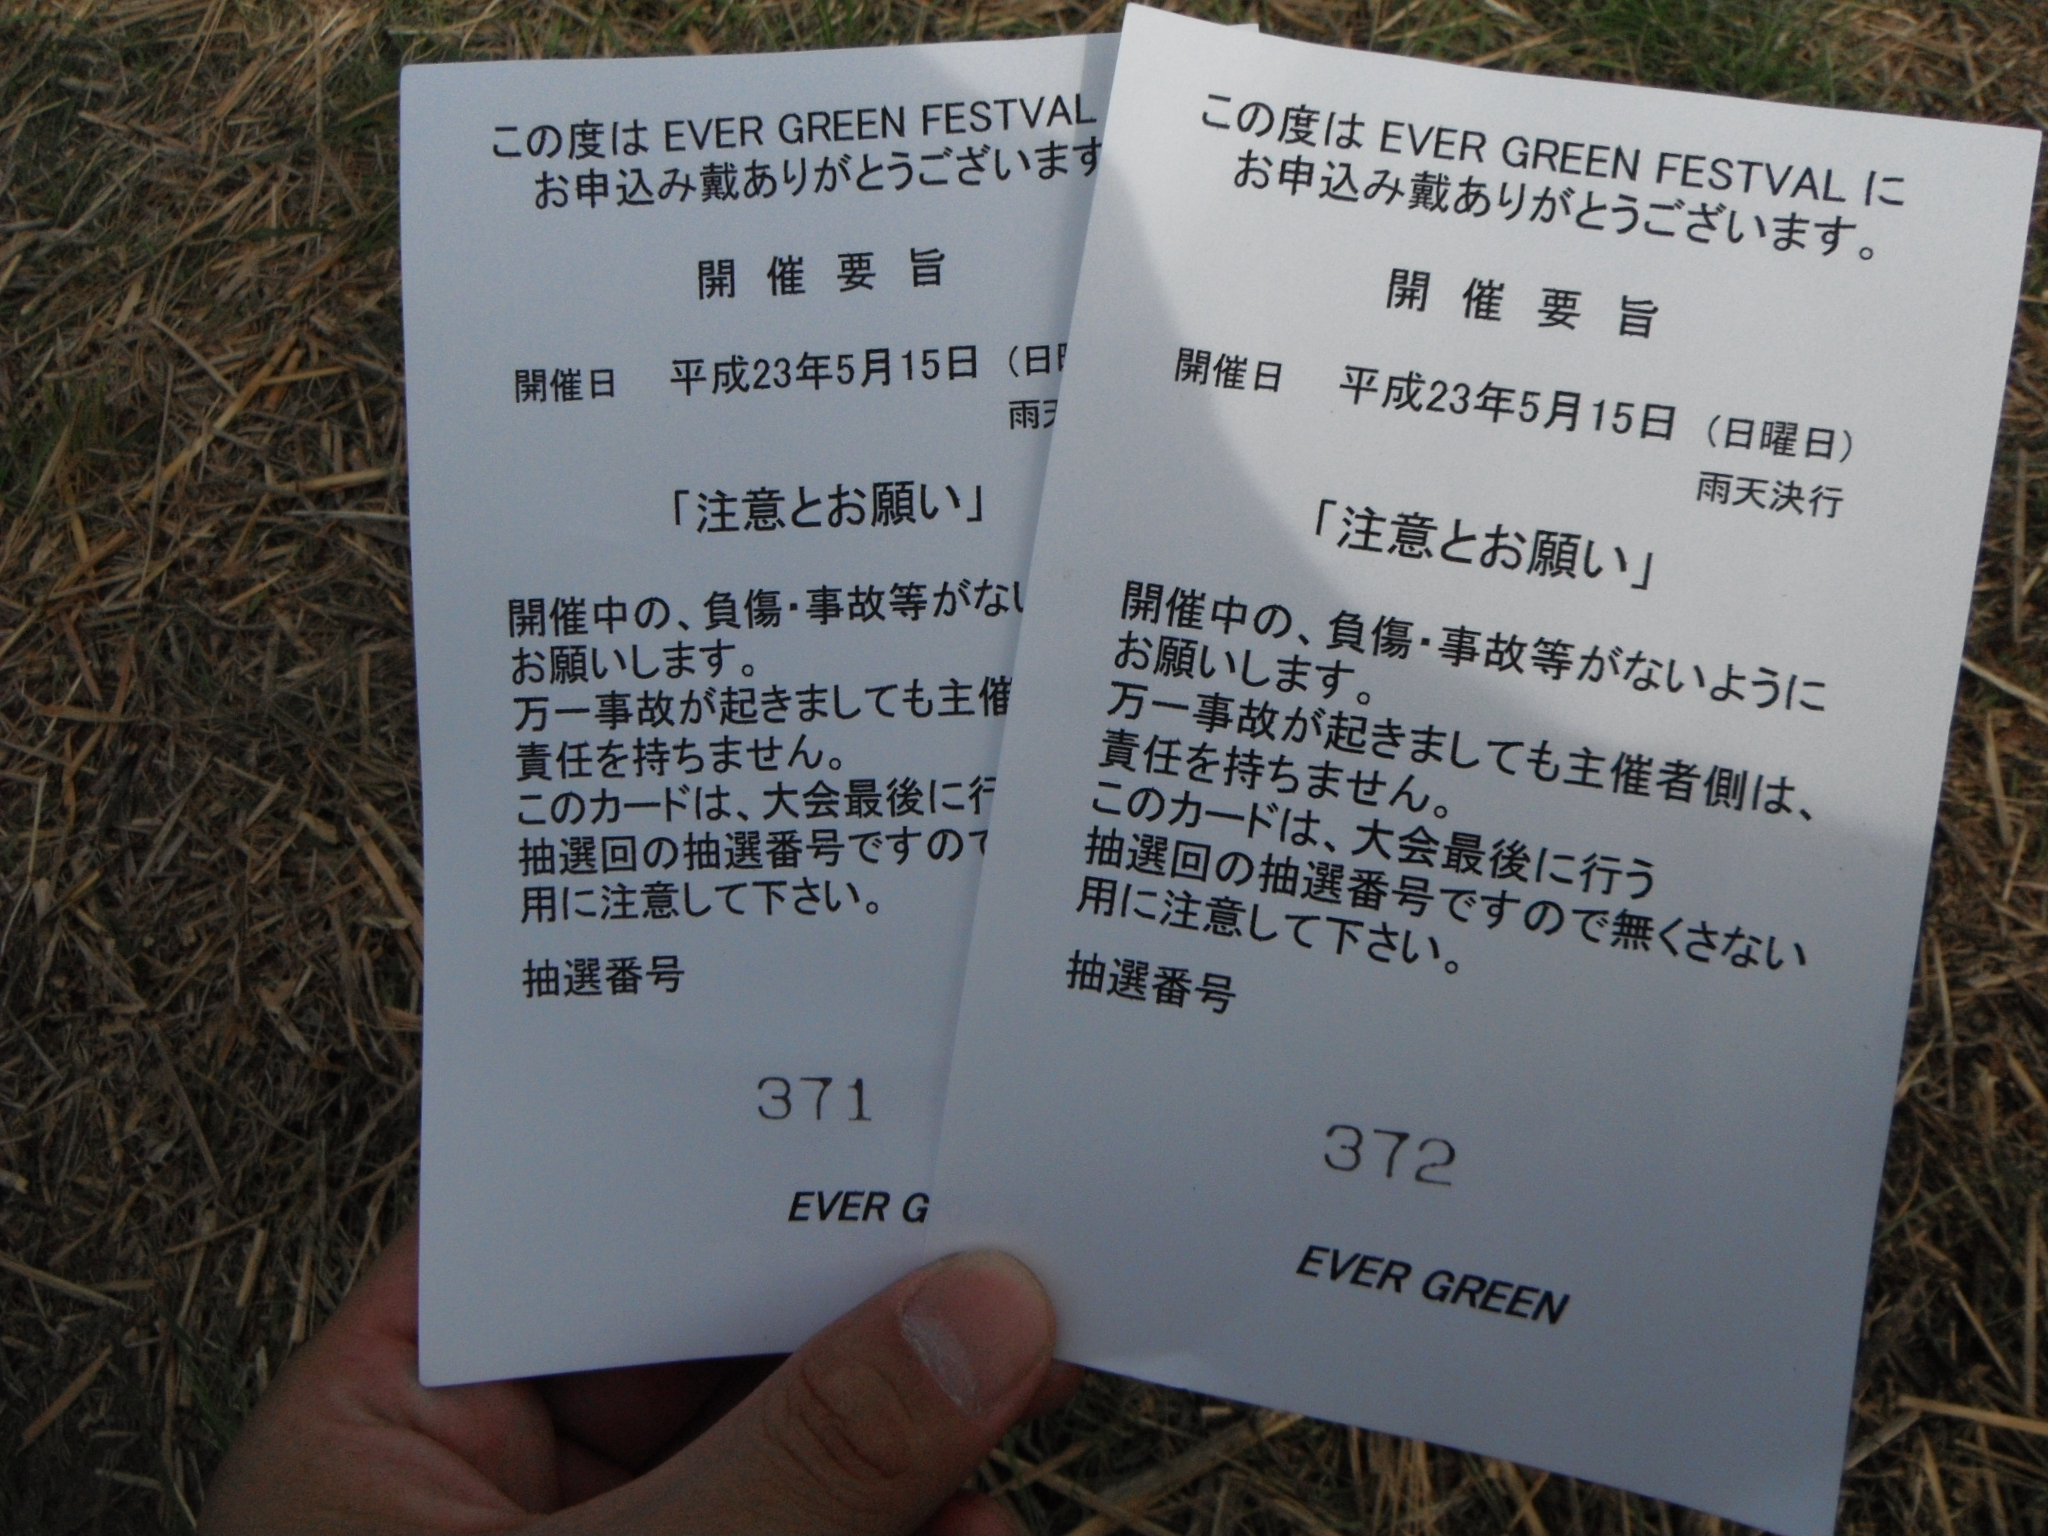 この度は EVER GREEN FESTVAL
お申込み戴ありがとうございます
開 催 要 旨
開催日 平成23年5月15日 (日
雨天
「注意とお願い」
開催中の、負傷・事故等がない
お願いします。
万一事故が起きましても主催
責任を持ちません。
このカードは、大会最後に行
抽選回の抽選番号ですので
用に注意して下さい。
抽選番号
371
EVER G
この度は EVER GREEN FESTVAL に
お申込み戴ありがとうございます。
開 催 要 旨
開催日 平成23年5月15日 (日曜日)
雨天決行
「注意とお願い」
開催中の、負傷・事故等がないように
お願いします。
万一事故が起きましても主催者側は、
責任を持ちません。
このカードは、大会最後に行う
抽選回の抽選番号ですので無くさない
用に注意して下さい。
抽選番号
372
EVER GREEN